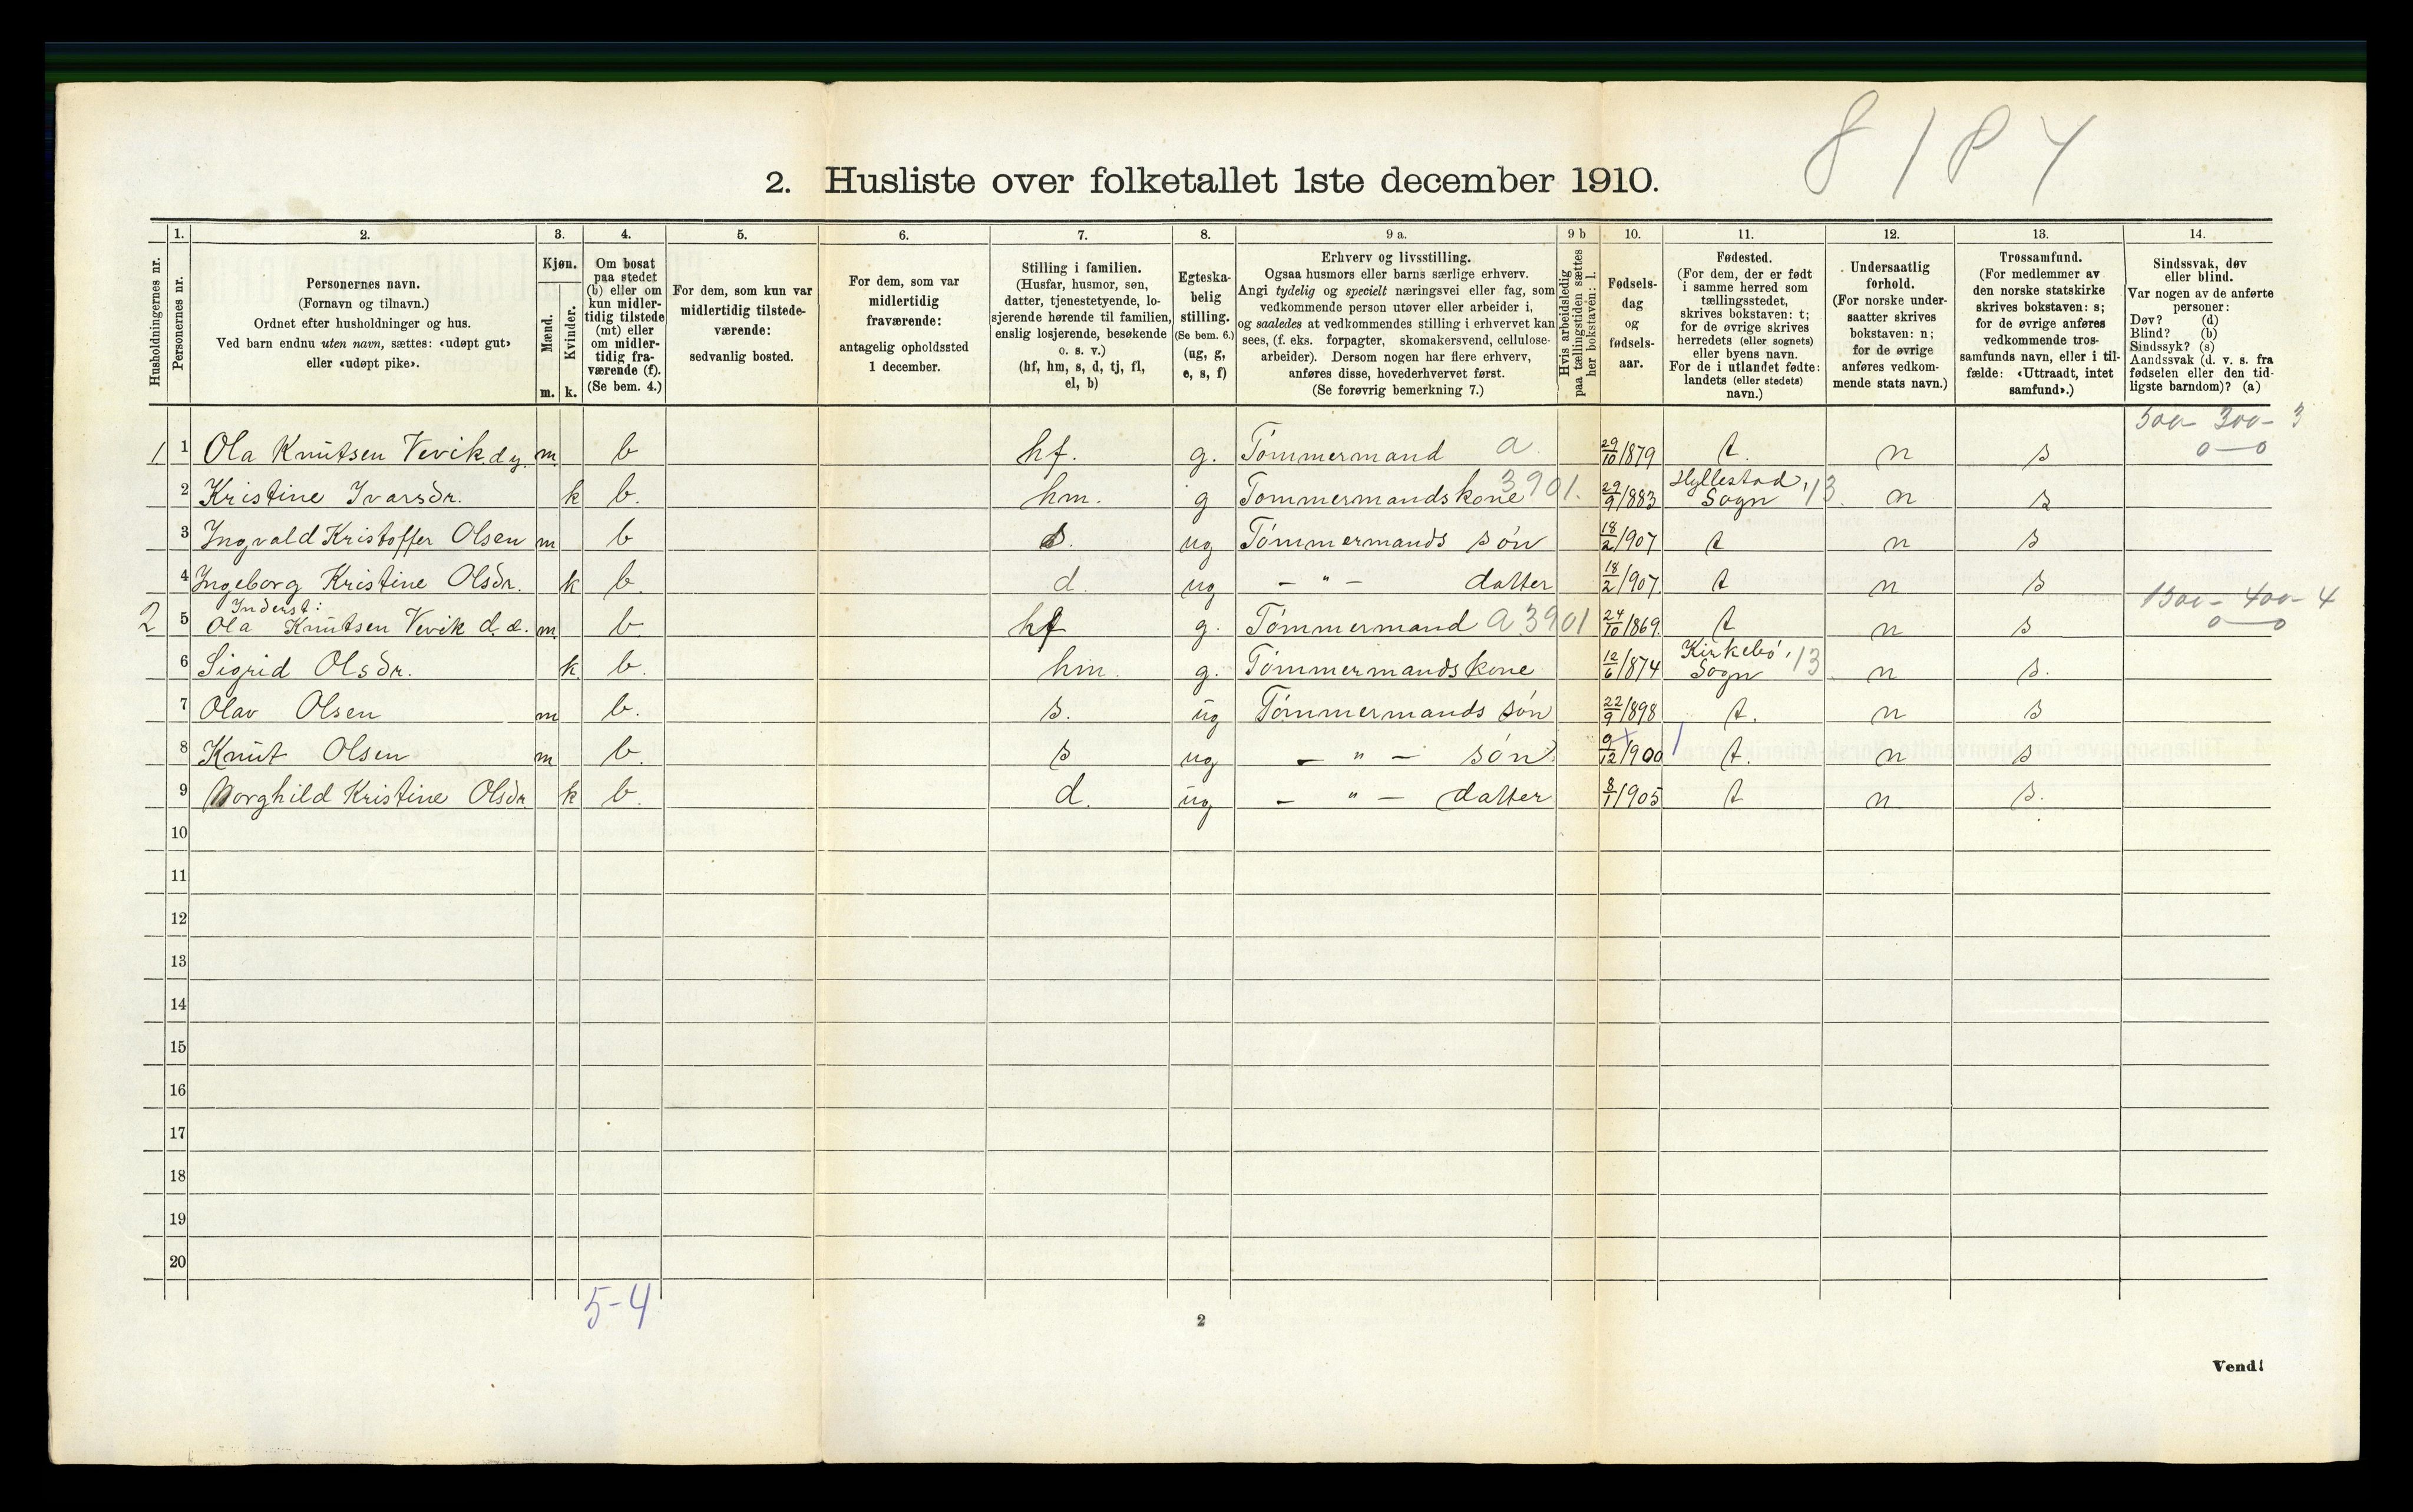 8184
2. Husliste over folketallet 1ste december 1910.
1. 2. 3. 4. 5. 6. 7. 8. 9 a. 9 b 10. 11. 12. 13. 14.
Husholdningernes nr.
Personernes nr.
Personernes navn.
(Fornavn og tilnavn.)
Ordnet efter husholdninger og hus.
Ved barn endnu uten navn, sættes: «udøpt gut»
eller «udøpt pike».
Kjøn.
Mænd.
Kvinder.
m. k.
Om bosat
paa stedet
(b) eller om
kun midler-
tidig tilstede
(mt) eller
om midler-
tidig fra-
værende (f).
(Se bem. 4.)
For dem, som kun var
midlertidig tilstede-
værende:
sedvanlig bosted.
For dem, som var
midlertidig
fraværende:
antagelig opholdssted
1 december.
Stilling i familien.
(Husfar, husmor, søn,
datter, tjenestetyende, lo-
sjerende hørende til familien,
enslig losjerende, besøkende
o. s. v.)
(hf, hm, s, d, tj, fl,
el, b)
Egteska-
belig
stilling.
(Se bem. 6.)
(ug, g,
e, s, f)
Erhverv og livsstilling.
Ogsaa husmors eller barns særlige erhverv.
Angi tydelig og specielt næringsvei eller fag, som
vedkommende person utøver eller arbeider i,
og saaledes at vedkommendes stilling i erhvervet kan
sees, (f. eks. forpagter, skomakersvend, cellulose-
arbeider). Dersom nogen har flere erhverv,
anføres disse, hovederhvervet først.
(Se forøvrig bemerkning 7.)
Hvis arbeidsledig
paa tællingstiden sættes
her bokstaven: l.
Fødsels-
dag
og
fødsels-
aar.
Fødested.
(For dem, der er født
i samme herred som
tællingsstedet,
skrives bokstaven: t;
for de øvrige skrives
herredets (eller sognets)
eller byens navn.
For de i utlandet fødte:
landets (eller stedets)
navn.)
Undersaatlig
forhold.
(For norske under-
saatter skrives
bokstaven: n;
for de øvrige
anføres vedkom-
mende stats navn.)
Trossamfund.
(For medlemmer av
den norske statskirke
skrives bokstaven: s;
for de øvrige anføres
vedkommende tros-
samfunds navn, eller i til-
fælde: «Uttraadt, intet
samfund».)
Sindssvak, døv
eller blind.
Var nogen av de anførte
personer:
Døv? (d)
Blind? (b)
Sindssyk? (s)
Aandssvak (d. v. s. fra
fødselen eller den tid-
ligste barndom)? (a)
500- 300- 3
1 1 Ola Knutsen Vevik. d y. m b hf. g. Tømmermand a. 29/10/1879 t. n s 0-0
2 Kristine Ivarsdr. k b. hm. g Tømmermandskone 3901. 29/9/1883 Hyllestad, Sogn 13. n s
3 Ingvald Kristoffer Olsen m b s. ug Tømmermands søn 18/2/1907 t n s
4 Ingeborg Kristine Olsdr. k b. d. ug - " - datter 18/2/1907. t n s
Inderst:
1500- 400- 4
2 5 Ola Knutsen Vevik d. æ. m. b. hf g. Tømmermand a 3901 24/10/1869. t n s 0-0
6 Sigrid Olsdr. k. b. hm. g. Tømmermandskone 12/6/1874 Kirkebø, Sogn 13 n s.
7 Olav Olsen m b. s. ug Tømmermands søn 22/9/1898 t. n s
8 Knut Olsen m b. s ug - " - søn 9/12/1900 t. n s
9 Borghild Kristine Olsdr k b. d. ug - " - datter 8/1/1905 t n s.
10
11
12
13
14
15
16
17
18
19
20
5-4
2
Vend!